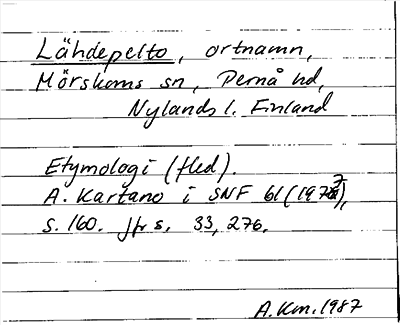 Lähdepelto, ortnamn,
Mörskoms sn, Pernå hd,
Nylands l. Finland
Etymologi (fled).
A. Kartano i SNF 61 (1977),
s. 160. Jfr s. 33, 276.
A.Km. 1987